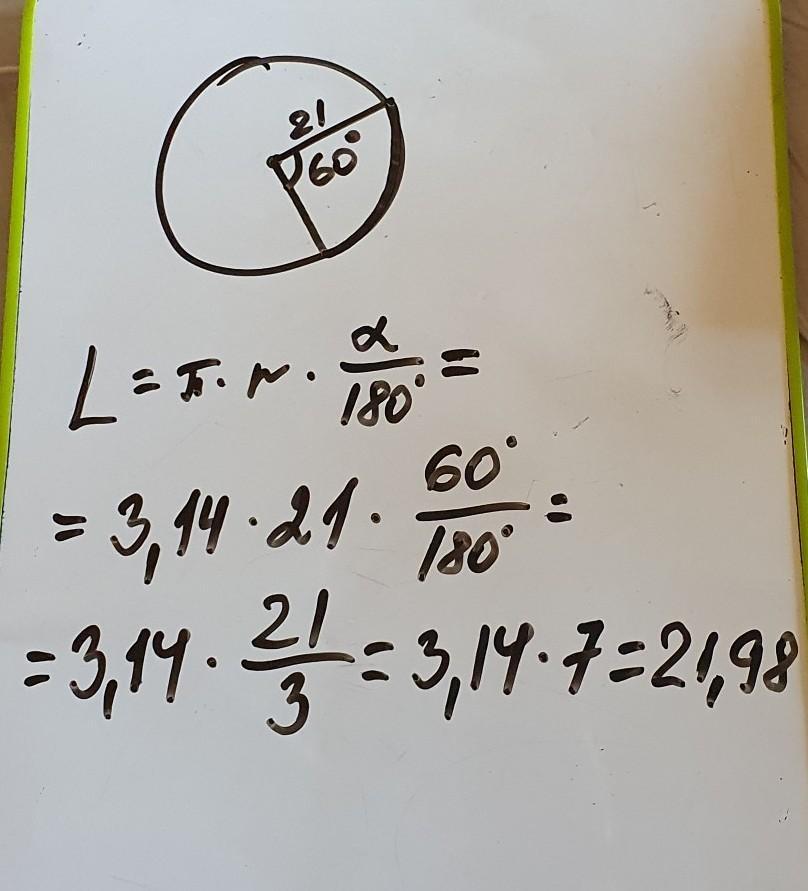 21
60°
L = π · r · α/180° =
= 3,14 · 21 · 60°/180° =
= 3,14 · 21/3 = 3,14 · 7 = 21,98